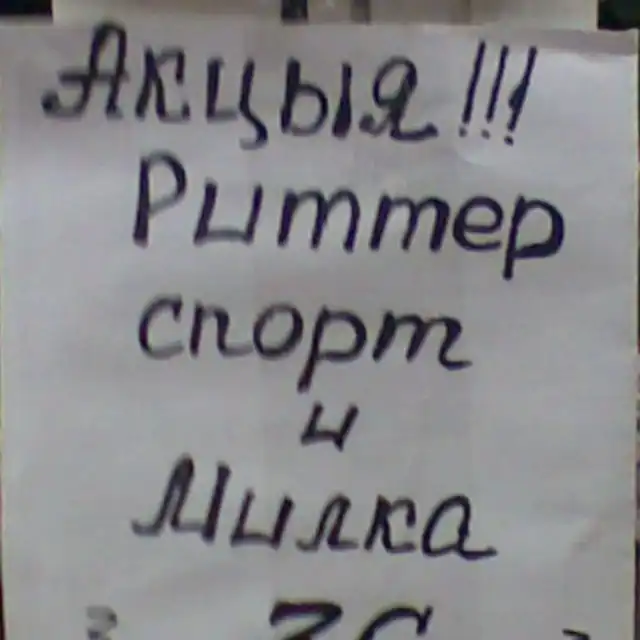 Акцыя!!!
Риттер
спорт
и
Милка